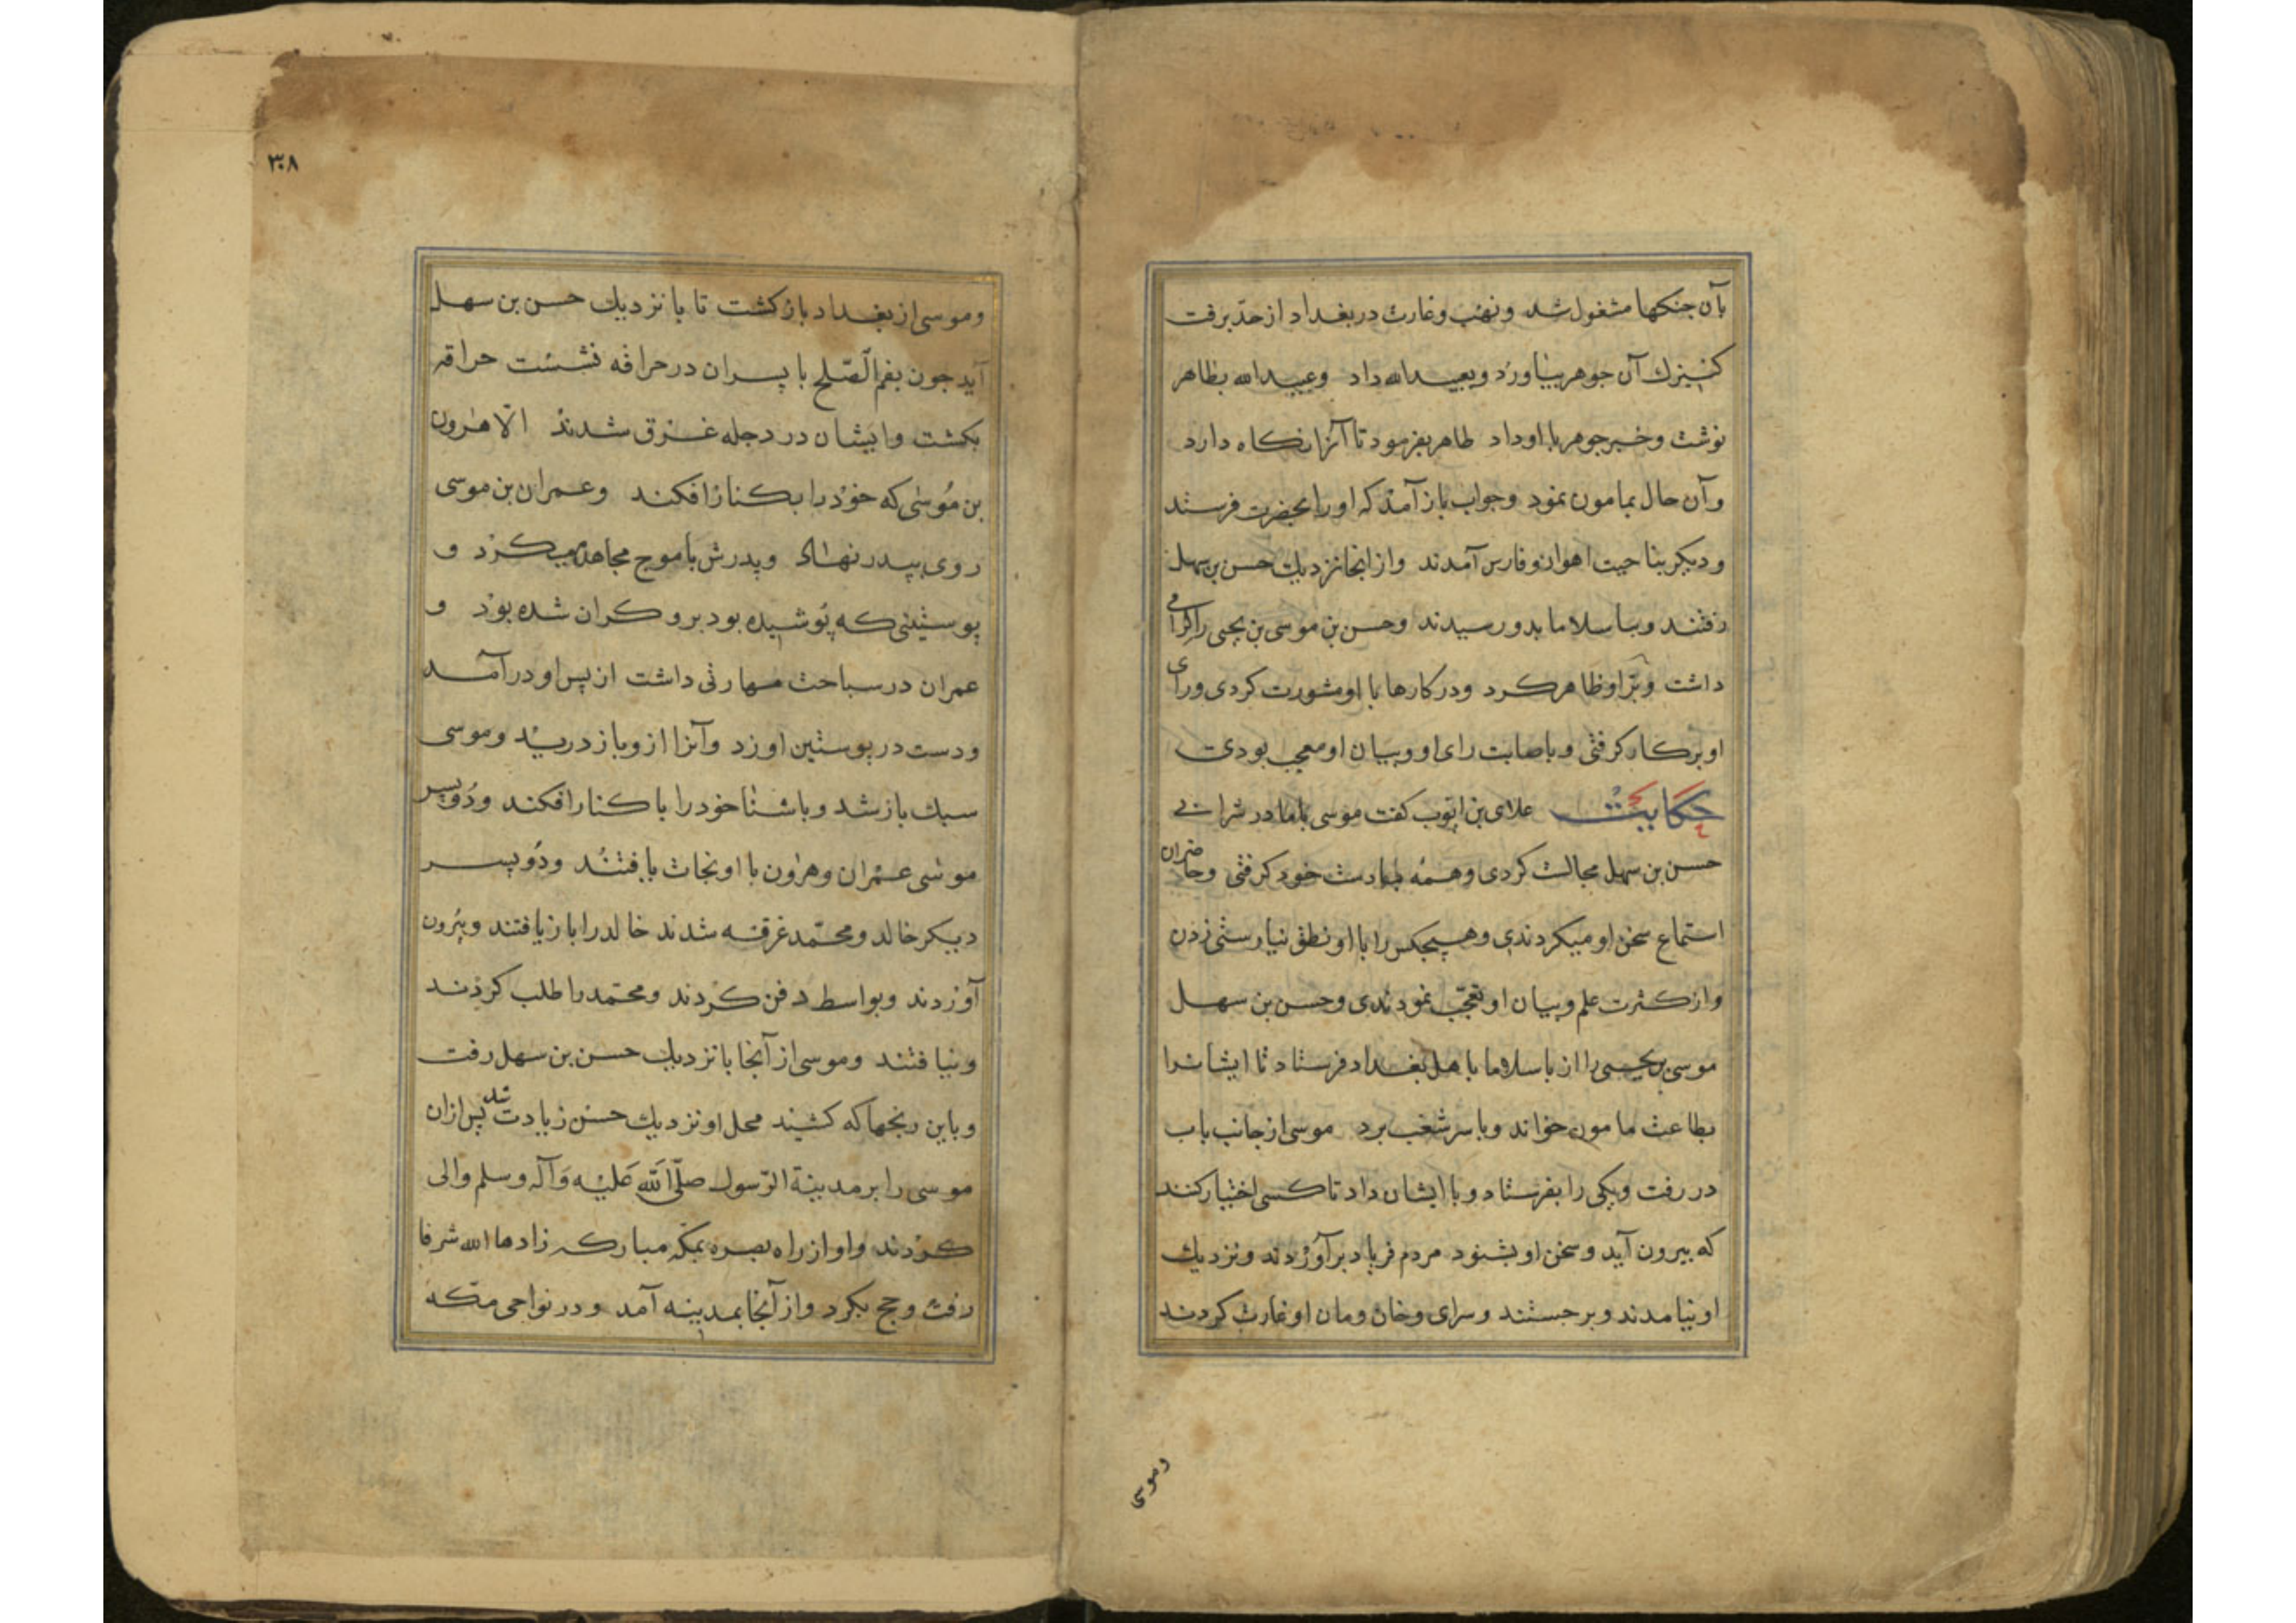 بآن جنکها مشغول شد ونهب وغارت در بغداد از حدّ برفت
کنیزك آن جوهر بیاورد وبعبیدالله داد وعبیدالله بطاهر
نوشت وخبر جوهر با او داد طاهر بفرمود تا آنرا نکاه دارد
وآن حال بمامون نمود وجواب باز آمد که او را بحضرت فرستد
ودیکر بناحیت اهواز وفارس آمدند واز انجا نزدیك حسن بن سهل
رفتند وبباسلاما بدو رسیدند وحسن بن موسی بن یحیی را کرامی
داشت وبرّ او ظاهر کرد ودر کارها با او مشورت کردی ورای
او بر کار کرفتی وباصابت رای او وبیان او معجب بودی
حکایت علای بن ایّوب کفت موسی باما در سرای
حسن بن سهل مجالست کردی وهمه خود کرفتی وحاضران
استماع سخن او میکردندی وهیچکس را با او نطق نیارستی زدن
واز کثرت علم وبیان او تعجّب نمودندی وحسن بن سهل
موسی بن یحیی را از باسلاما باهل بغداد فرستاد تا ایشانرا
بطاعت مامون خواند وبا سر شغب برد موسی از جانب باب
در رفت ویکی را بفرستاد وبا ایشان داد تا کسی اختیار کنند
که بیرون آید وسخن او بشنود مردم فریاد برآوردند ونزدیك
او نیامدند وبرجستند وسرای وخان ومان او غارت کردند
وموسی
٣٠٨
وموسی از بغداد بازکشت تا با نزدیك حسن بن سهل
آید جون بفم الصّلح با پسران در حراقه نشست حراقه
بکشت وایشان در دجله غرق شدند الّا هرون
بن مُوسٰی که خوذ را بکنار افکند وعمران بن موسی
روی بپدر نهاد وپدرش باموج مجاهده میکرد و
پوستینی که پوشیده بود برو کران شده بوذ و
عمران در سباحت مهارتی داشت از پس او درآمد
ودست در پوستین او زد وآنرا ازو باز درید وموسی
سبك باز شد وباشنا خود را با کنار افکند ودو پسر
موسی عمران وهرون با او نجات یافتند ودو پسر
دیکر خالد ومحمّد غرقه شدند خالد را باز یافتند وبیرون
آوردند وبواسط دفن کردند ومحمّد را طلب کردند
ونیافتند وموسی از آنجا با نزدیك حسن بن سهل رفت
وباین رنجها که کشیند محل او نزدیك حسن زیادت شد پس ازان
موسی را بر مدینة الرّسول صلّی الله علیه وآله وسلم والی
کردند واو از راه بصره بمکّه مبارکه زادها الله شرفا
رفت وحج بکرد واز آنجا بمدینه آمد ودر نواحی مکّه